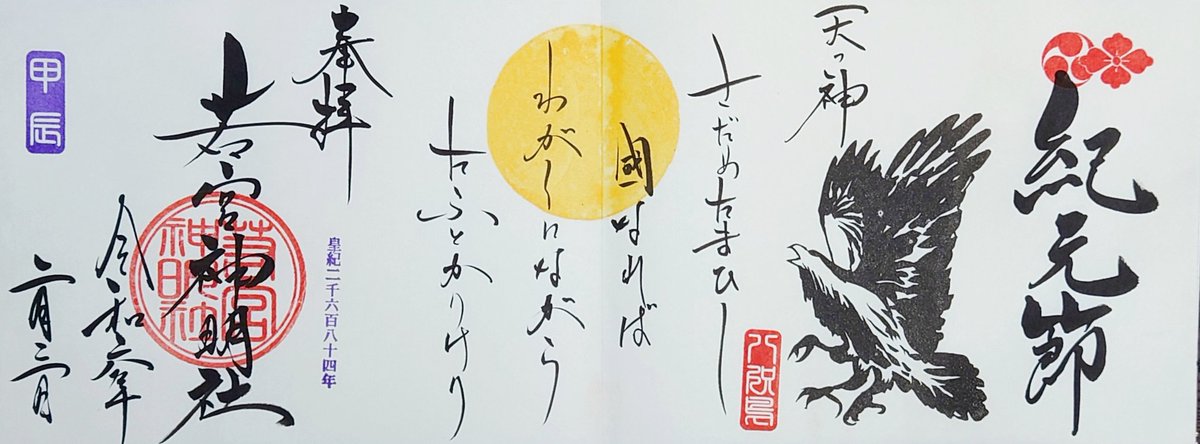 紀元節
八咫烏
天つ神
さだめたまひし
國なれば
わがくにながら
たふとかりけり
奉拝
皇紀二千六百八十四年
若宮神明社
若宮
神明社
令和六年
二月
甲辰